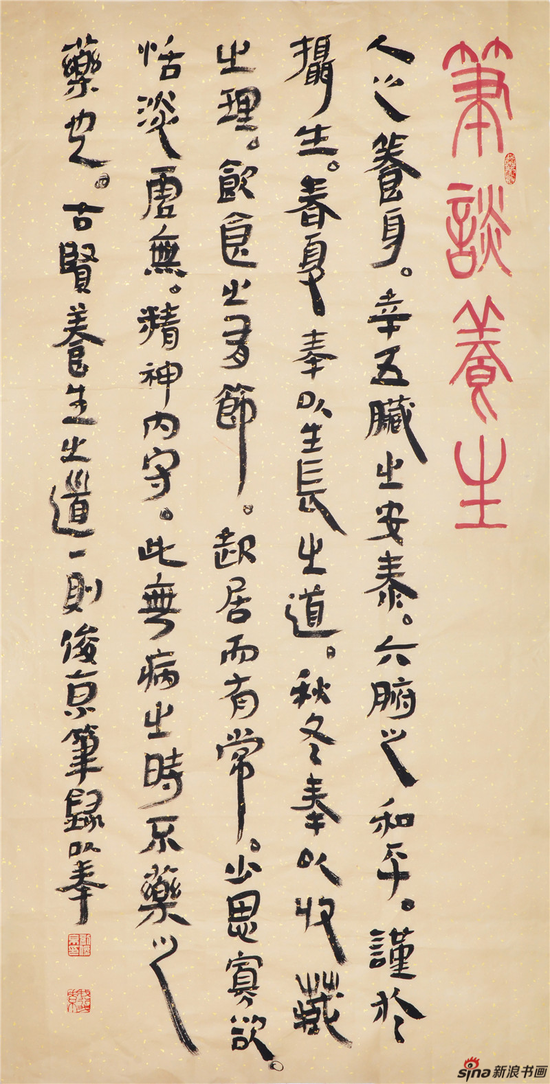 筆談養生
人之養身。幸五臟之安泰。六腑之和平。謹於
攝生。春夏奉以生長之道。秋冬奉以收藏
之理。飲食之有節。起居而有常。少思寡欲。
恬淡虛無。精神内守。此無病之時不藥之
藥也。古賢養生之道一則俊京筆錄以奉
sina新浪书画